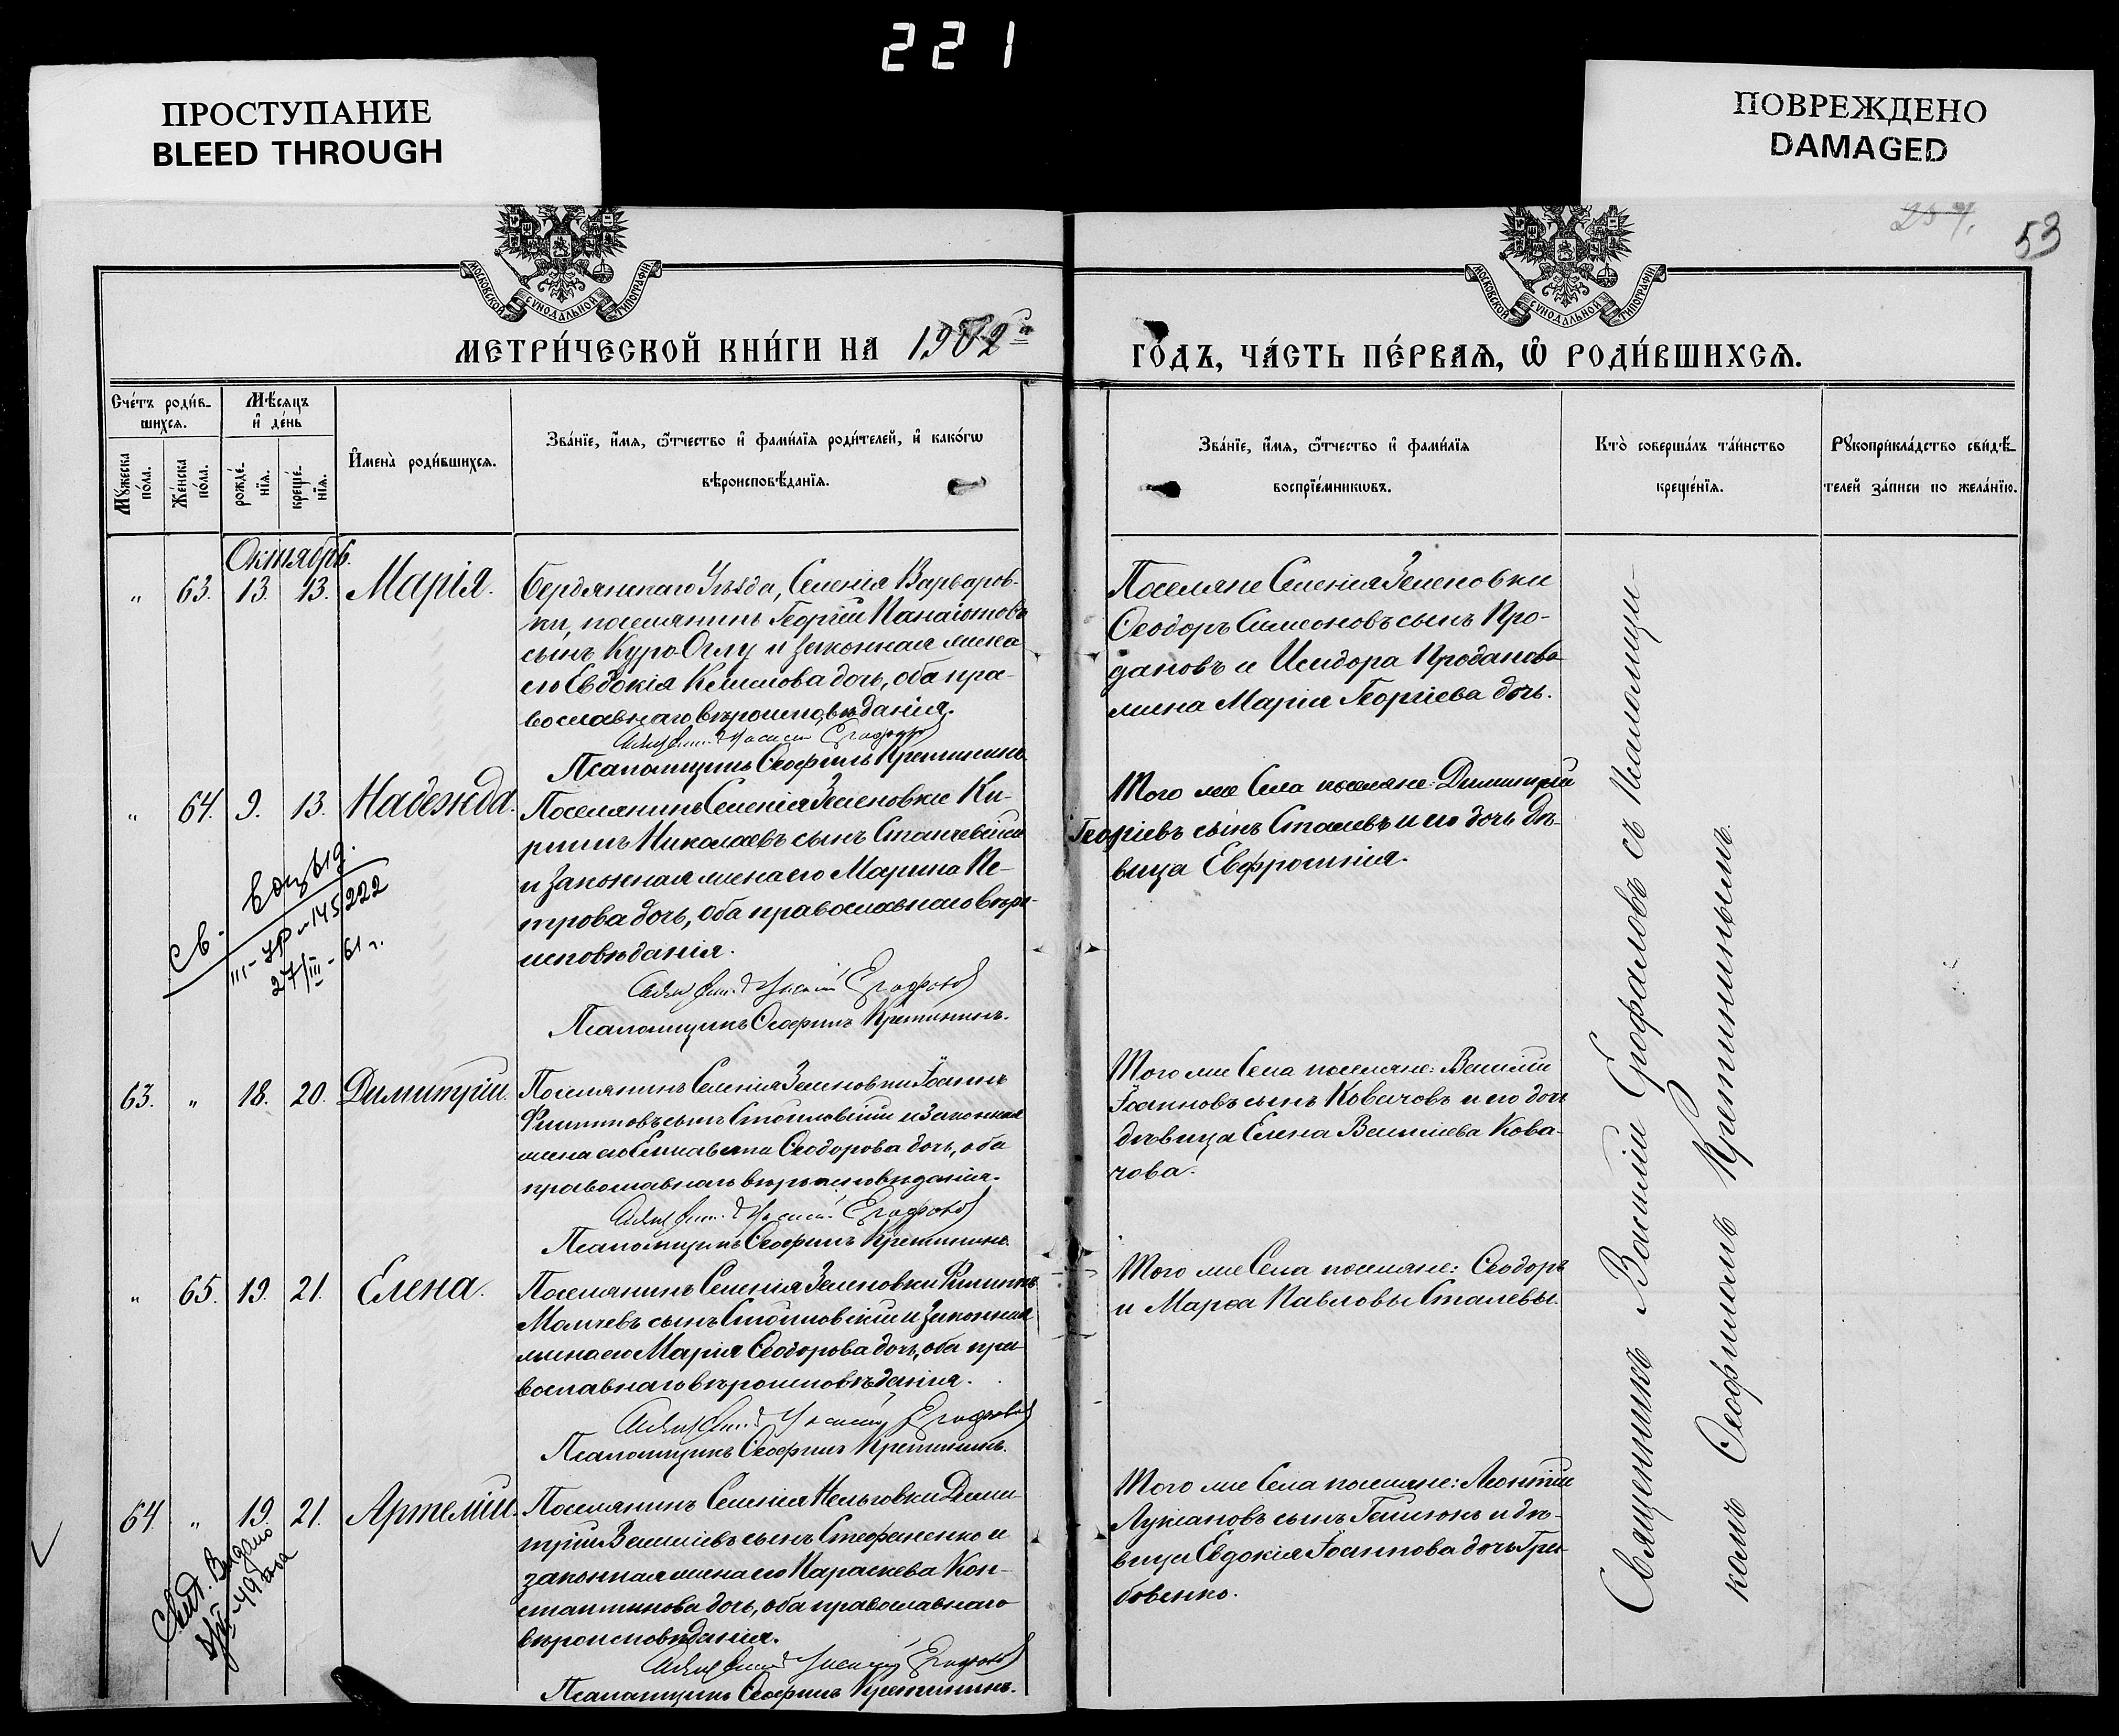 221
ПРОСТУПАНИЕ
BLEED THROUGH
ПОВРЕЖДЕНО
DAMAGED
53
МОСКОВСКОЙ СѴНОДАЛЬНОЙ ТИПОГРАФІИ
МОСКОВСКОЙ СѴНОДАЛЬНОЙ ТИПОГРАФІИ
МЕТРИ́ЧЕСКОЙ КНИ́ГИ НА 1902 го́дъ, ча́сть пе́рваѧ, ѡ҆ роди́вшихсѧ.
Сче́тъ роди́в-
шихсѧ.
Мѣ́сѧцъ
и҆ де́нь
Мꙋ́жеска по́ла.
Же́нска по́ла.
рожде́-
нїѧ.
креще́-
нїѧ.
И҆мена̀ роди́вшихсѧ.
Зва́нїе, и҆́мѧ, ѻ҆́тчество и҆ фами́лїѧ роди́телей, и҆ како́гѡ
вѣроисповѣ́данїѧ.
Зва́нїе, и҆́мѧ, ѻ҆́тчество и҆ фами́лїѧ
воспрїе́мникѡвъ.
Кто̀ соверша́лъ та́инство
креще́нїѧ.
Рꙋкоприкла́дство свидѣ́-
телей за́писи по жела́нїю.
Октябрь.
„ 63. 13. 13. Марія.
Бердянскаго Уѣзда, Селенія Варваров-
ки, поселянинъ Георгій Панаіотовъ
сынъ Куро-Оглу и законная жена
его Евдокія Климова дочь, оба пра-
вославнаго вѣроисповѣданія.
Псаломщикъ Ѳеофилъ Кретининъ.
Поселяне Селенія Зеленовки
Ѳеодоръ Симеоновъ сынъ Про-
дановъ и Исидора Проданова
жена Марія Георгіева дочь.
„ 64. 9. 13. Надежда.
Поселянинъ Селенія Зеленовки Ки-
риллъ Николаевъ сынъ
и законная жена его Марина Пе-
трова дочь, оба православнаго вѣро-
исповѣданія.
Псаломщикъ Ѳеофилъ Кретининъ.
Того же Села поселяне: Димитрій
Георгіевъ сынъ Сталевъ и его дочь дѣ-
вица Евфросинія.
Св.
III-
27/III - 61 г.
63. „ 18. 20. Димитрій.
Поселянинъ Селенія Зеленовки Іоаннъ
Филипповъ сынъ и законная
жена его Елисавета Ѳеодорова дочь, оба
православнаго вѣроисповѣданія.
Псаломщикъ Ѳеофилъ Кретининъ.
Того же Села поселяне: Василій
Іоанновъ сынъ Ковачовъ и его дочь
дѣвица Елена Василіева Кова-
чова.
„ 65. 19. 21. Елена.
Поселянинъ Селенія Зеленовки Филиппъ
сынъ и законная
жена его Марія Ѳеодорова дочь, оба пра-
вославнаго вѣроисповѣданія.
Псаломщикъ Ѳеофилъ Кретининъ.
Того же Села поселяне: Ѳеодоръ
и Марѳа Павловы Сталевы.
64. „ 19. 21. Артемій.
Поселянинъ Селенія Нельговки Дими-
трій Василіевъ сынъ Стефаненко и
законная жена его Параскева Кон-
стантинова дочь, оба православнаго
вѣроисповѣданія.
Псаломщикъ Ѳеофилъ Кретининъ.
Того же Села поселяне: Леонтій
Лукіановъ сынъ и дѣ-
вица Евдокія Іоаннова дочь Гри-
бовенко.
Священникъ Василій Ерофаловъ съ Псаломщи-
комъ Ѳеофиломъ Кретининымъ.